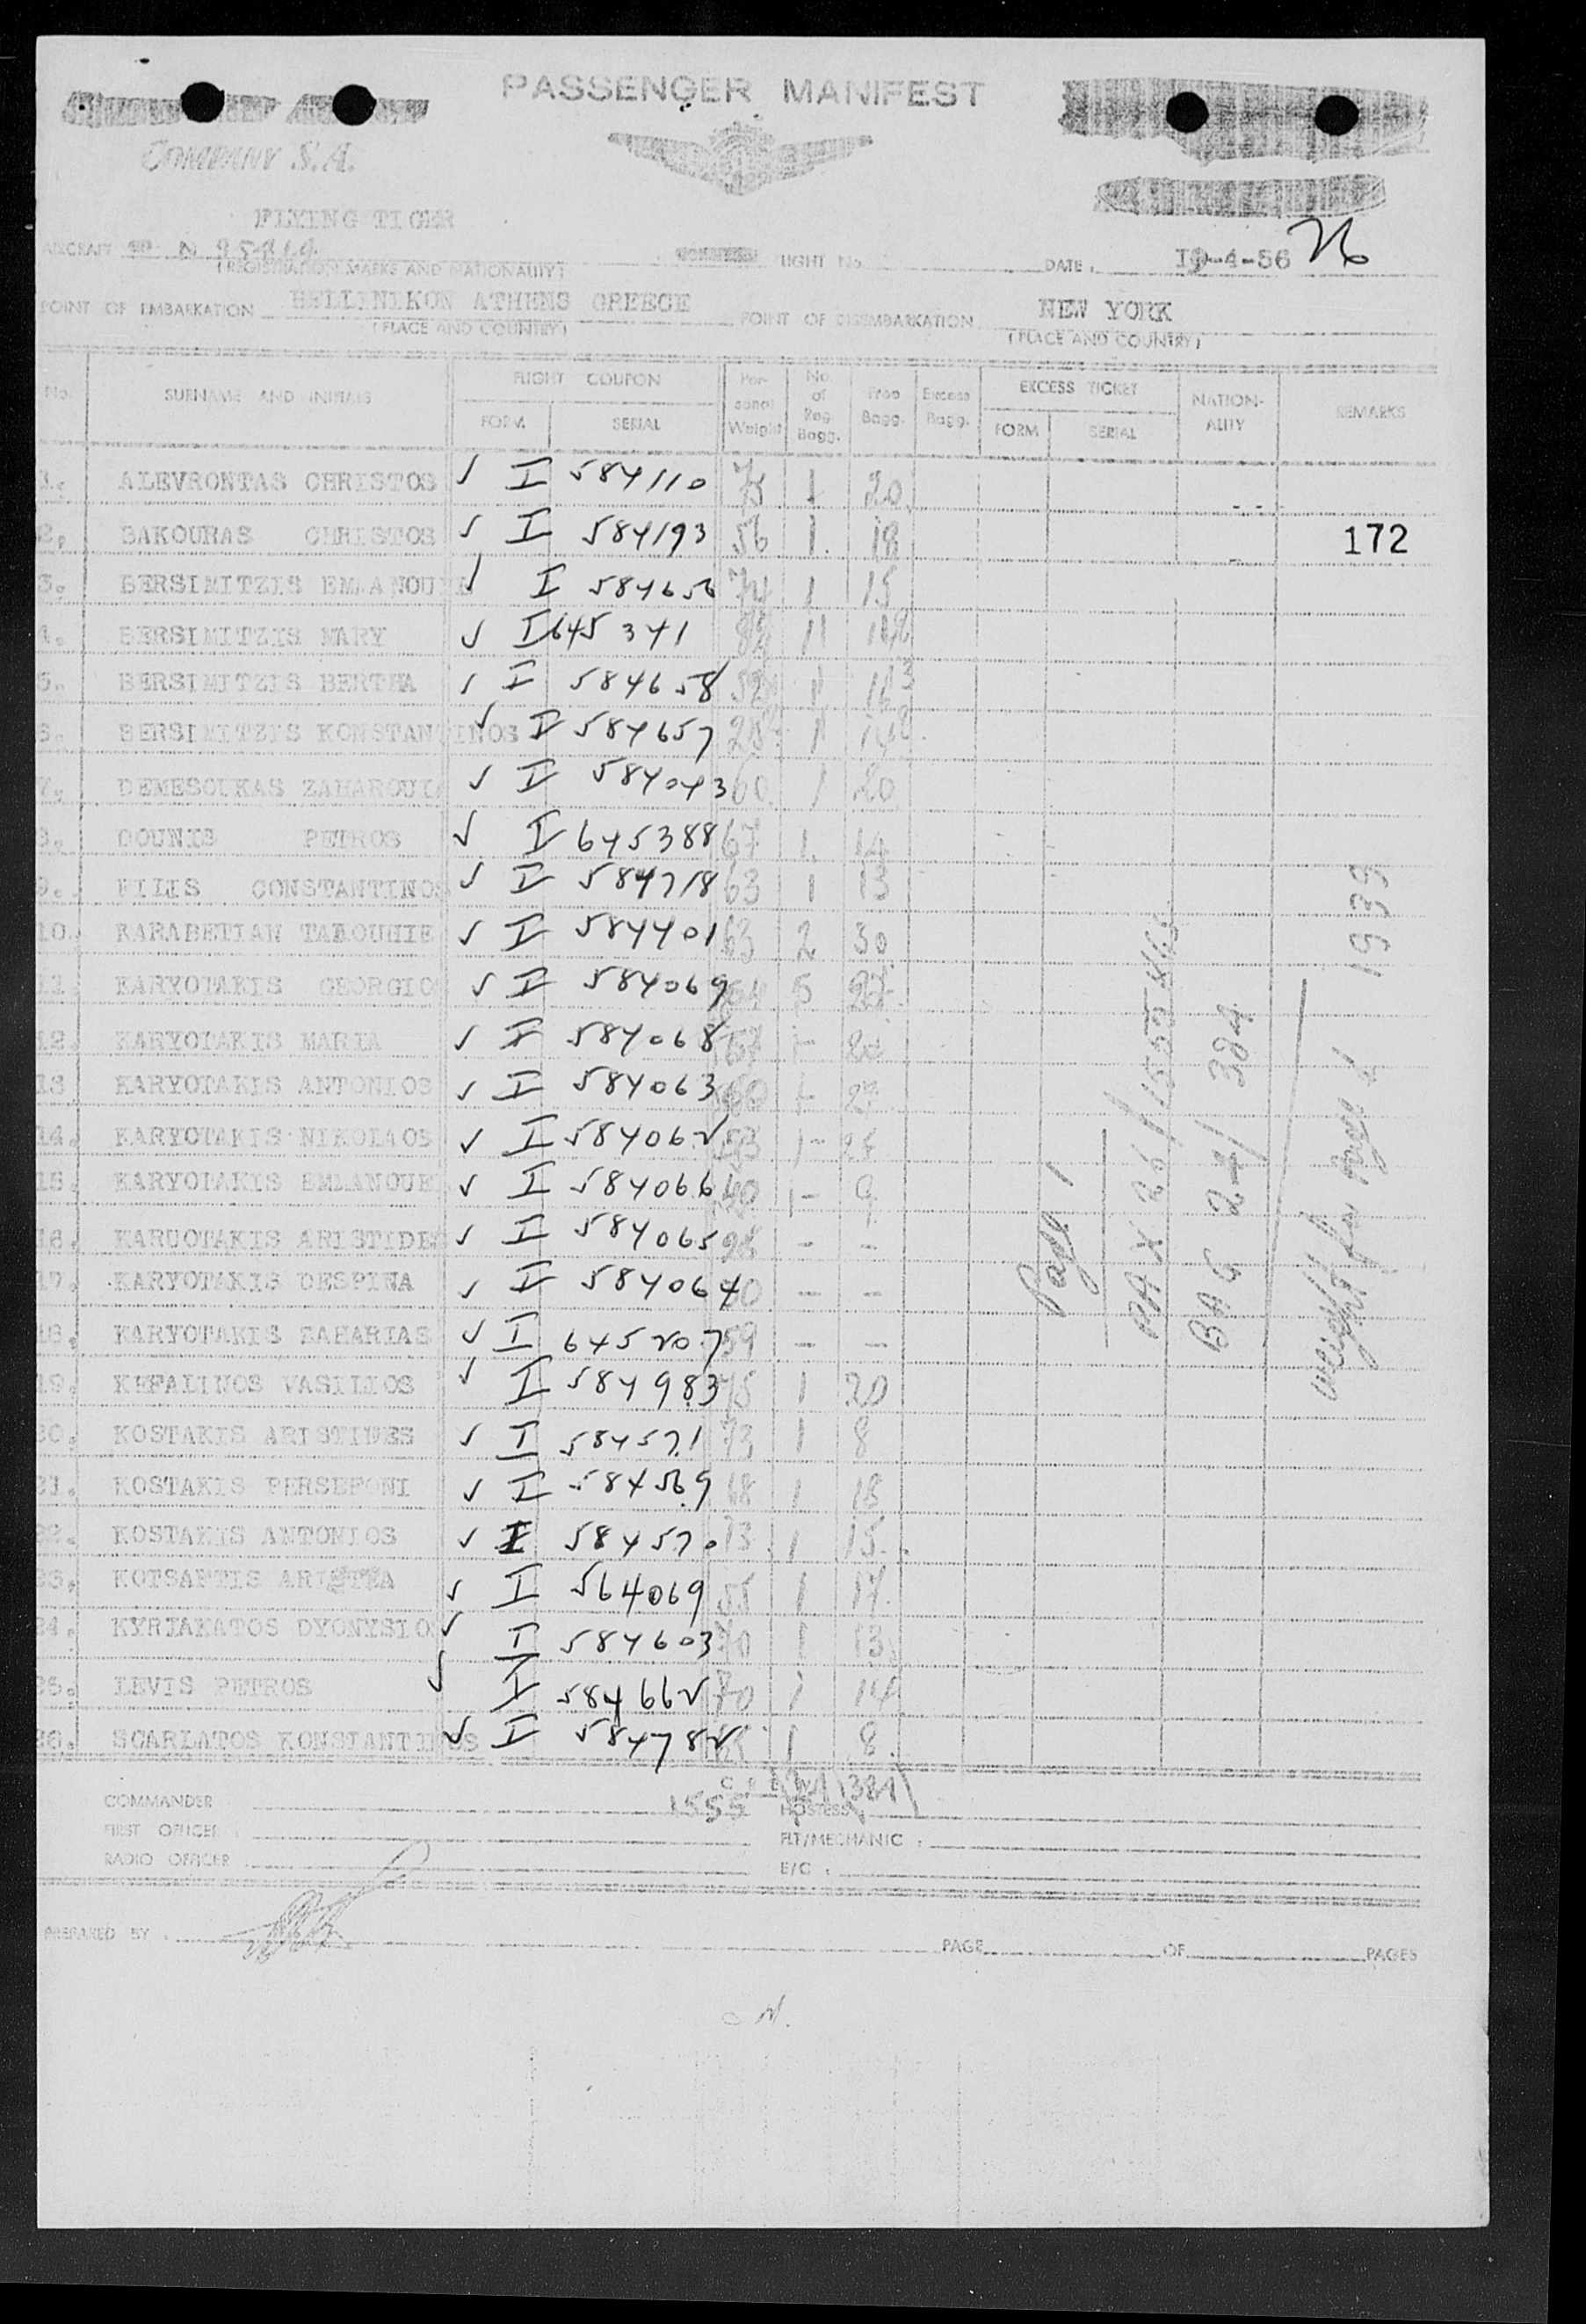 PASSENGER MANIFEST
COMPANY S.A.
FLYING TIGER
AIRCRAFT N
(REGISTRATION MARKS AND NATIONALITY)
FLIGHT No
DATE: 19-4-56
POINT OF EMBARKATION HELLINIKON ATHENS GREECE
(PLACE AND COUNTRY)
POINT OF DISEMBARKATION NEW YORK
(PLACE AND COUNTRY)
No. SURNAME AND INITIALS FLIGHT COUPON FORM SERIAL Personal Weight No. of Reg. Bagg. Free Bagg. Excess Bagg. EXCESS TICKET FORM SERIAL NATIONALITY REMARKS
1. ALEVRONTAS CHRISTOS ✓ I 584110 75 1 20
2. BAKOURAS CHRISTOS ✓ I 584193 56 1 18 172
3. BERSIMITZIS EMMANOU ✓ I 584656 74 1 15
4. BERSIMITZIS MARY ✓ I 645341
5. BERSIMITZIS BERTHA ✓ I 584658
6. BERSIMITZIS KONSTANTINOS ✓ I 584657
7. DEMESOUKAS ZAHAROUI ✓ I 584043 60 1 20
8. COUNIS PETROS ✓ I 645388 67 1 14
9. FILIS CONSTANTINOS ✓ I 584718 63 1 13
10. KARABETIAN TAKOUHIE ✓ I 584401 63 2 30
11. KARYOTAKIS GEORGIO ✓ I 584069 5
12. KARYOTAKIS MARIA ✓ I 584068
13. KARYOTAKIS ANTONIOS ✓ I 584063
14. KARYOTAKIS NIKOLAOS ✓ I 584062 53
15. KARYOTAKIS EMMANOUE ✓ I 584066 9
16. KARUOTAKIS ARISTIDE ✓ I 584065 - -
17. KARYOTAKIS DESPINA ✓ I 584064 - -
18. KARYOTAKIS ZAHARIAS ✓ I 645207 59 - -
19. KEFALINOS VASILIOS ✓ I 584983 75 1 20
20. KOSTAKIS ARISTIDES ✓ I 584571 73 1 8
21. KOSTAKIS PERSEFONI ✓ I 584569 68 1 18
22. KOSTAKIS ANTONIOS ✓ I 584570 73 1 15
23. KOTSAFTIS ARISTEA ✓ I 564069 55 1 17
24. KYRIAKATOS DYONYSIO ✓ I 584603 70 1 13
25. LEVIS PETROS ✓ I 584662 70 1 14
26. SCARLATOS KONSTANTINOS ✓ I 584782 1 8
1555 384
Page 1
PAX 26 / 1555
BAG 24 / 384
weight for page 1 1939
COMMANDER :
HOSTESS
FIRST OFFICER :
FLT/MECHANIC :
RADIO OFFICER
E/C :
PREPARED BY :
PAGE OF PAGES